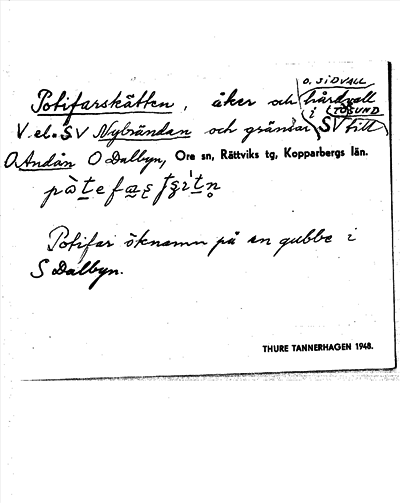 O. SIDVALL
Potifarskätten, åker och hårdvall
i TOSUND
V. el. SV Nybrändan och gränsar SV till
O Andån O Dalbyn, Ore sn, Rättviks tg, Kopparbergs län.
Potifar öknamn på en gubbe i
S Dalbyn.
THURE TANNERHAGEN 1948.